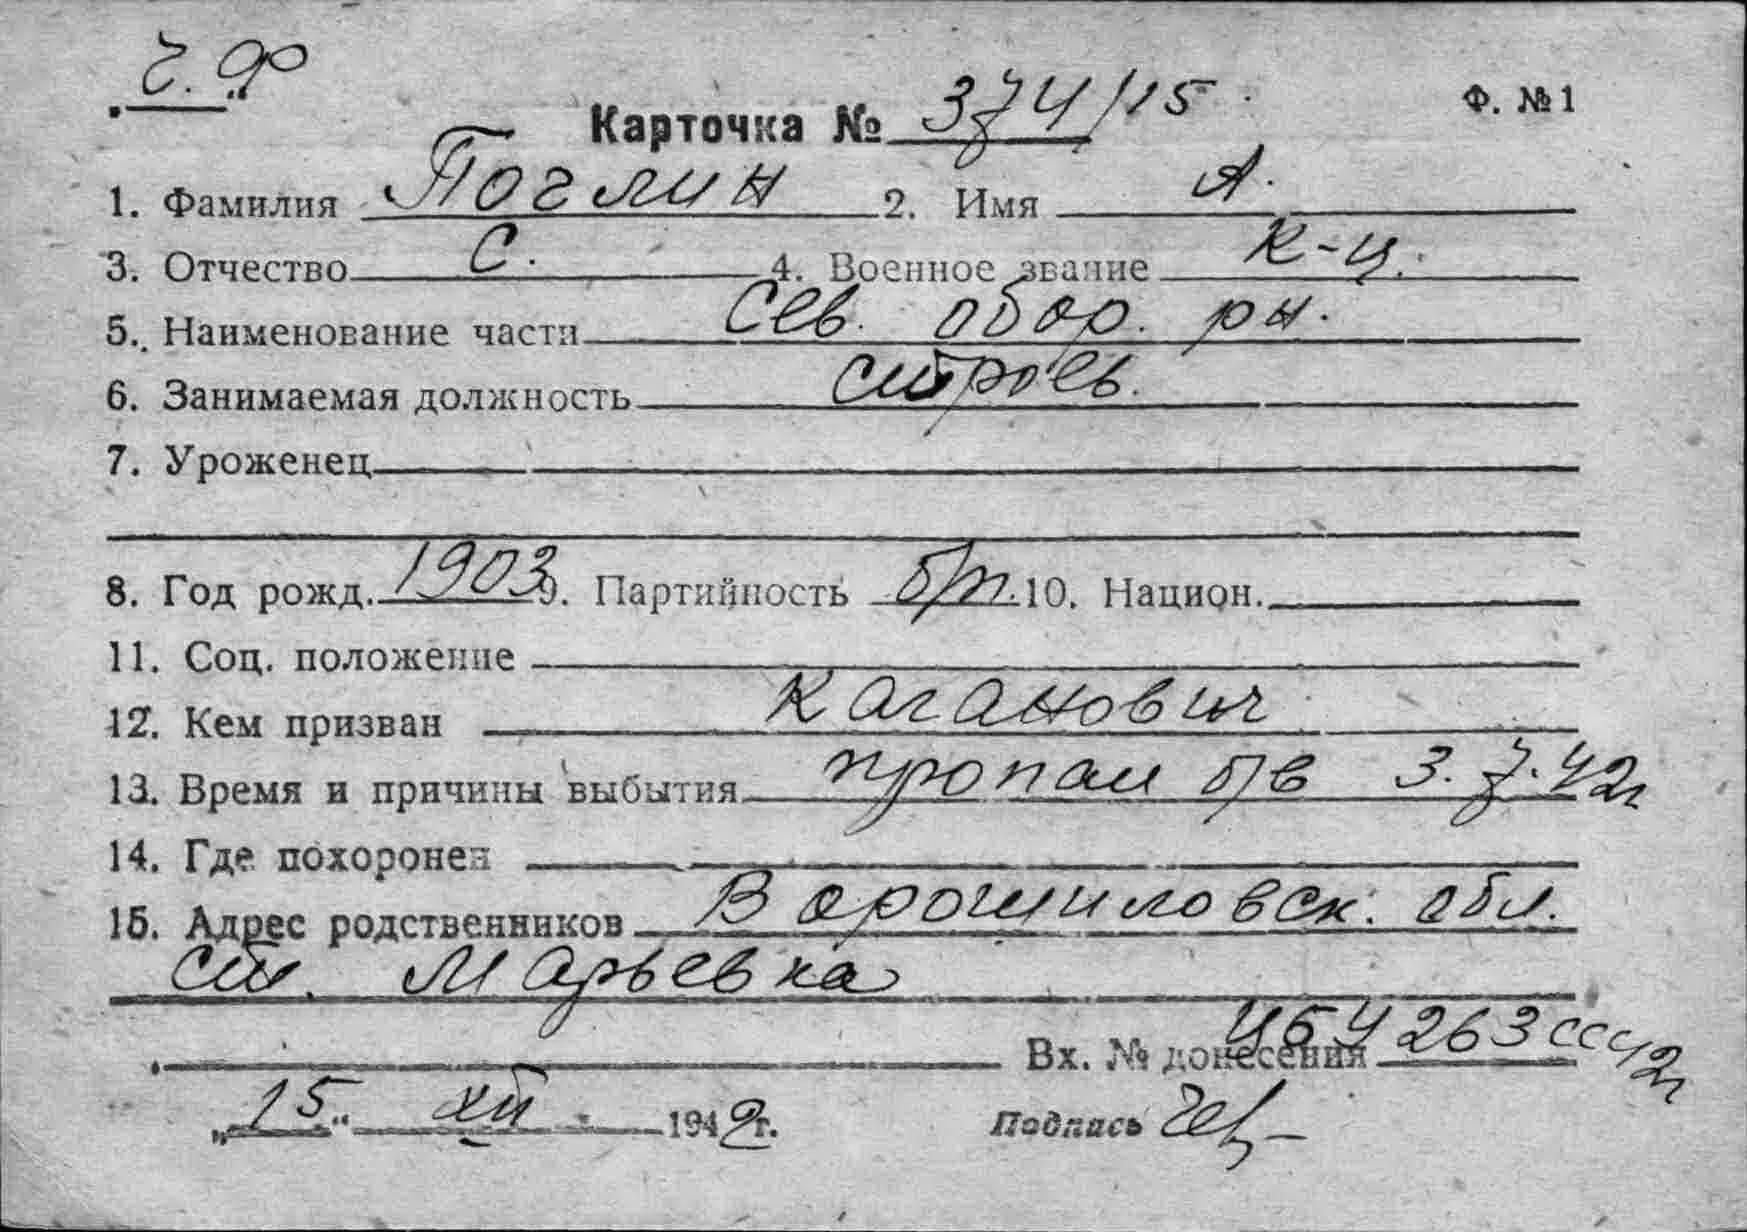 Ч.Ф
Карточка № 374/15 Ф. №1
1. Фамилия Поглин 2. Имя А.
3. Отчество С. 4. Военное звание К-ц.
5. Наименование части Сев. обор. рн.
6. Занимаемая должность строев.
7. Уроженец
8. Год рожд. 1903 9. Партийность б/п. 10. Национ.
11. Соц. положение
12. Кем призван Каганович
13. Время и причины выбытия пропал б/в 3.7.42г
14. Где похоронен
15. Адрес родственников Ворошиловск. обл.
ст. Марьевка
Вх. № донесения 263сс 42г
„15“ XII 1942г. Подпись